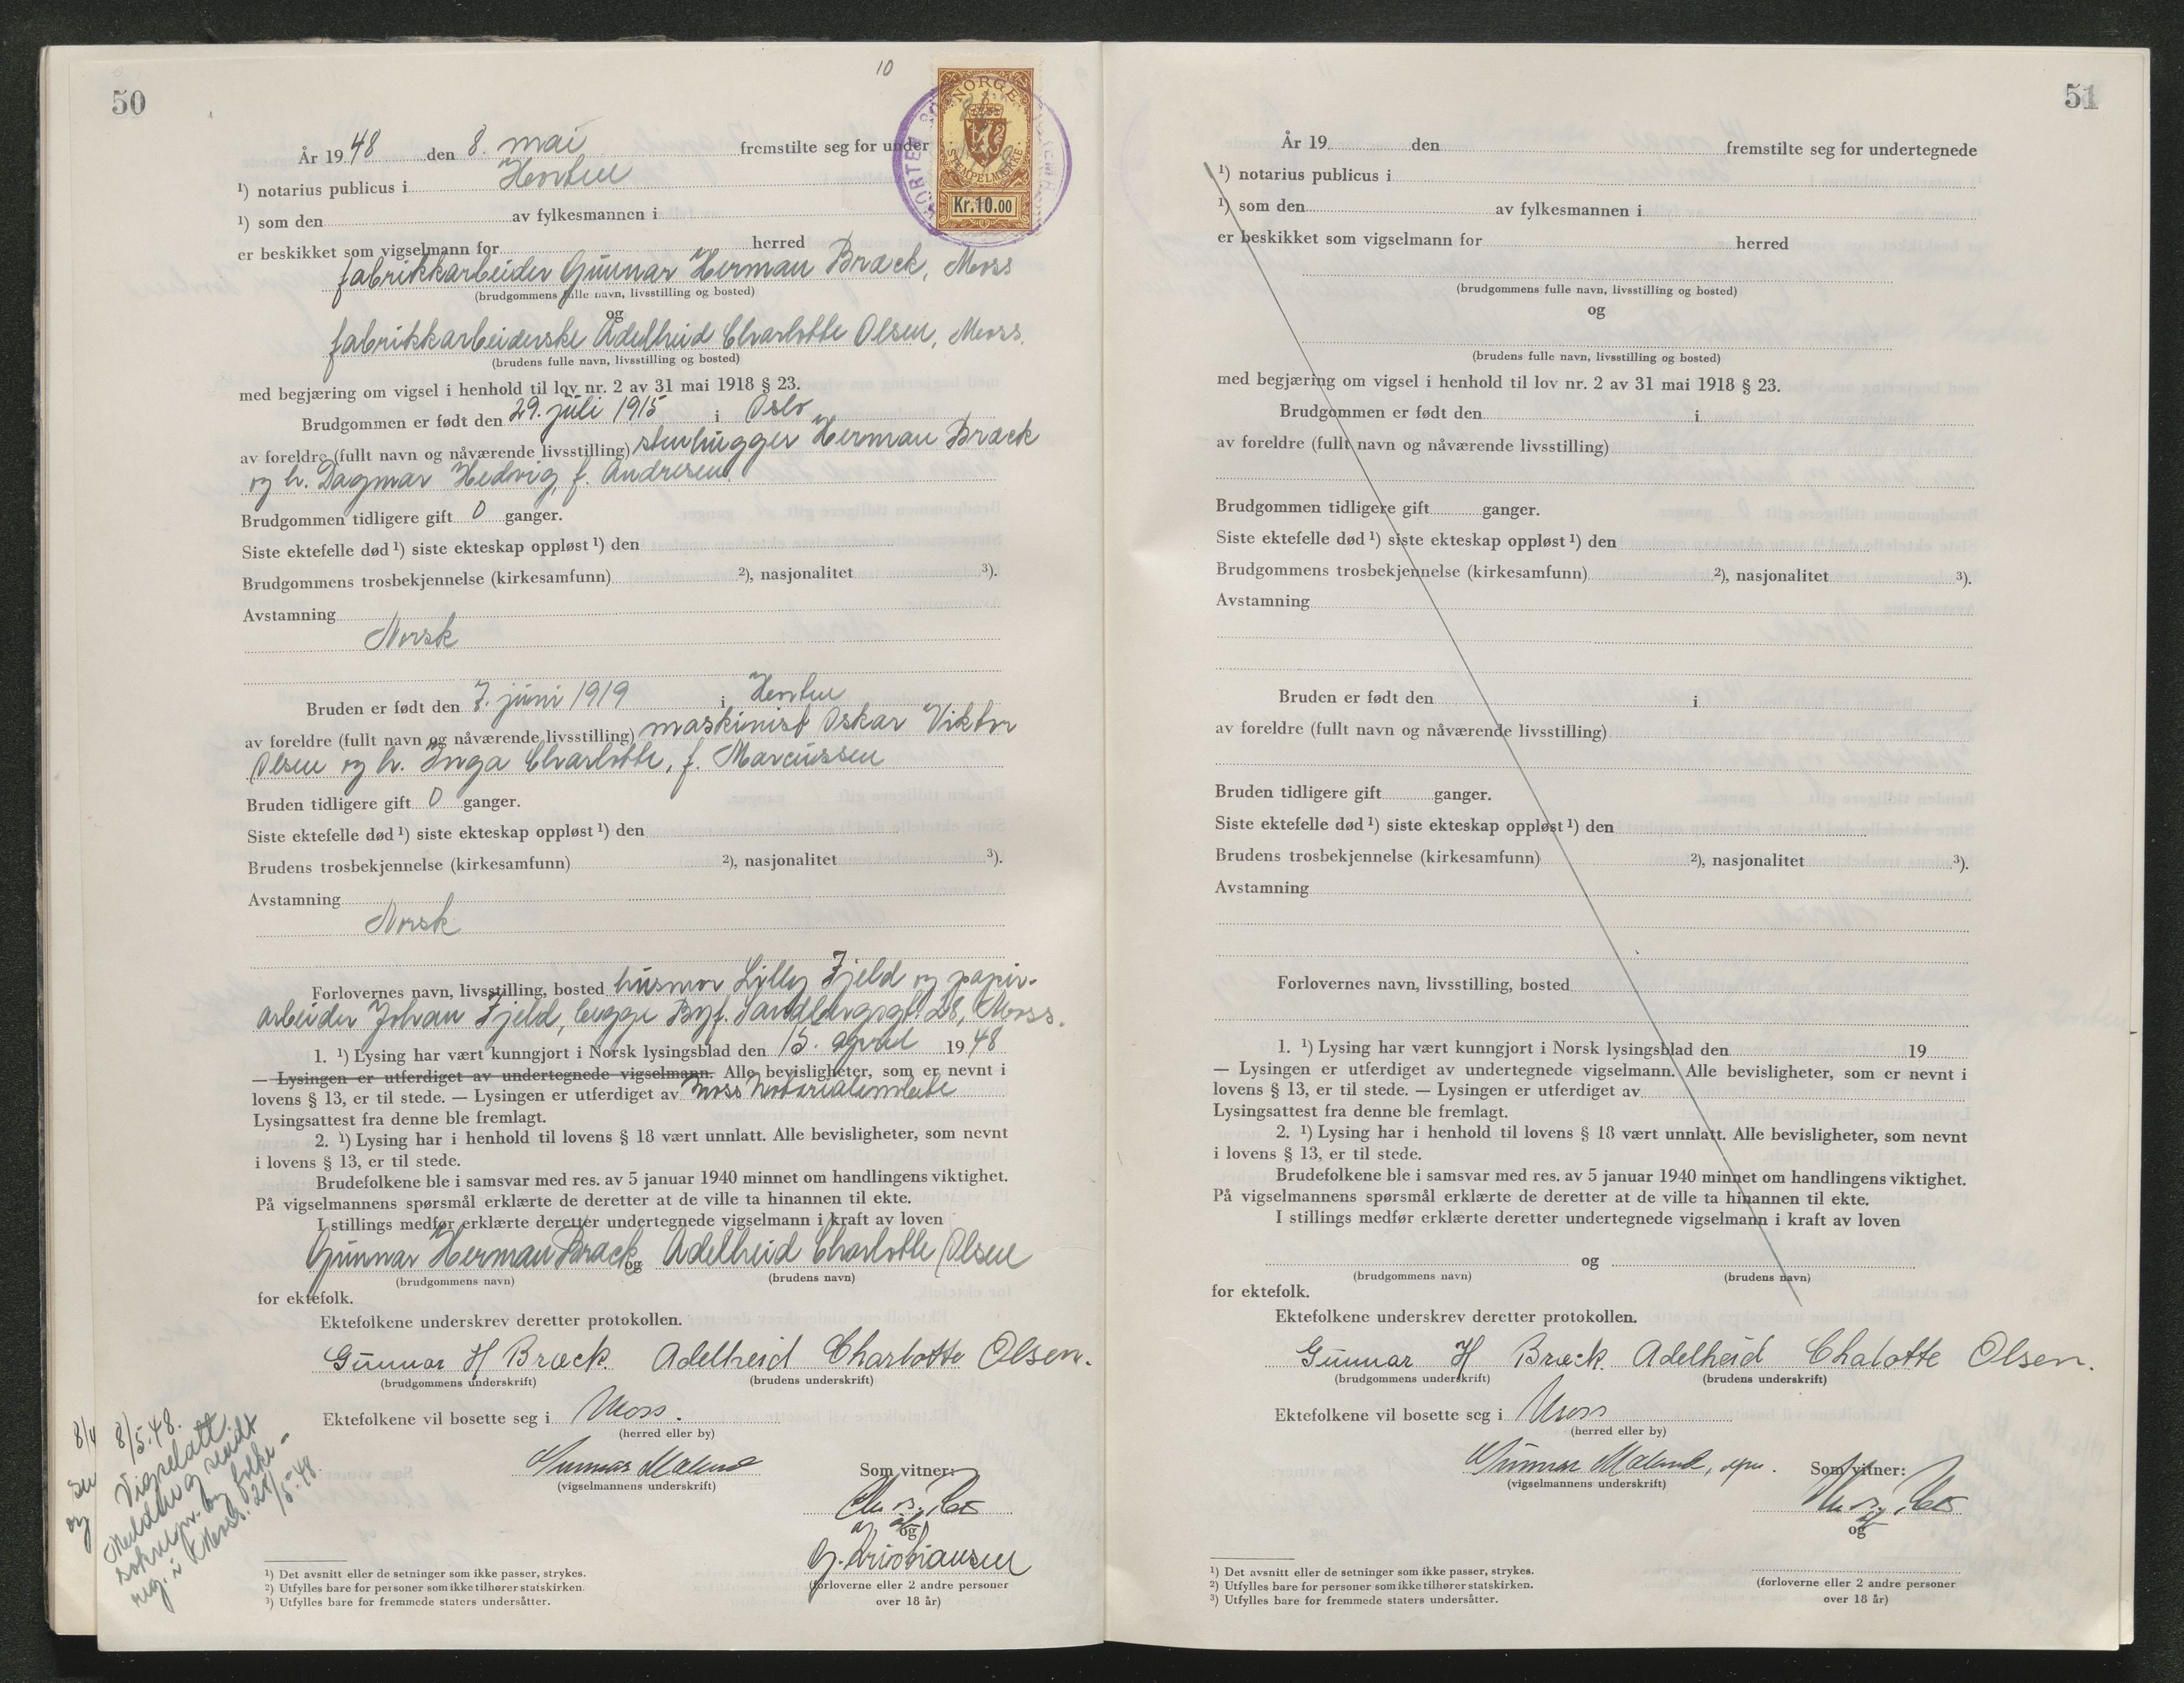 50
10
År 1948 den 8. mai fremstilte seg for under
¹) notarius publicus i Horten
¹) som den av fylkesmannen i
er beskikket som vigselmann for herred
fabrikkarbeider Gunnar Herman Bræck, Moss
(brudgommens fulle navn, livsstilling og bosted)
og
fabrikkarbeiderske Adelheid Charlotte Olsen, Moss.
(brudens fulle navn, livsstilling og bosted)
med begjæring om vigsel i henhold til lov nr. 2 av 31 mai 1918 § 23.
Brudgommen er født den 29. juli 1915 i Oslo
av foreldre (fullt navn og nåværende livsstilling) stenhugger Herman Bræck
og h. Dagmar Hedvig, f. Andresen.
Brudgommen tidligere gift 0 ganger.
Siste ektefelle død ¹) siste ekteskap oppløst ¹) den
Brudgommens trosbekjennelse (kirkesamfunn) ²), nasjonalitet ³).
Avstamning
Norsk
Bruden er født den 7. juni 1919 i Horten
av foreldre (fullt navn og nåværende livsstilling) maskinist Oskar Viktor
Olsen og h. Inga Charlotte, f. Marcussen
Bruden tidligere gift 0 ganger.
Siste ektefelle død ¹) siste ekteskap oppløst ¹) den
Brudens trosbekjennelse (kirkesamfunn) ²), nasjonalitet ³).
Avstamning
Norsk
Forlovernes navn, livsstilling, bosted husmor Lilly Fjeld og papir-
arbeider Johan Fjeld, begge Byf. Sandbergsgt. 28, Moss.
1. ¹) Lysing har vært kunngjort i Norsk lysingsblad den 15. april 1948
— Lysingen er utferdiget av undertegnede vigselmann. Alle bevisligheter, som er nevnt i
lovens § 13, er til stede. — Lysingen er utferdiget av Moss Notarialembete
Lysingsattest fra denne ble fremlagt.
2. ¹) Lysing har i henhold til lovens § 18 vært unnlatt. Alle bevisligheter, som nevnt
i lovens § 13, er til stede.
Brudefolkene ble i samsvar med res. av 5 januar 1940 minnet om handlingens viktighet.
På vigselmannens spørsmål erklærte de deretter at de ville ta hinannen til ekte.
I stillings medfør erklærte deretter undertegnede vigselmann i kraft av loven
Gunnar Herman Bræck og Adelheid Charlotte Olsen
(brudgommens navn) (brudens navn)
for ektefolk.
Ektefolkene underskrev deretter protokollen.
Gunnar H Bræck. Adelheid Charlotte Olsen.
(brudgommens underskrift) (brudens underskrift)
Ektefolkene vil bosette seg i Moss.
(herred eller by)
Gunnar Malund
(vigselmannens underskrift)
Som vitner:
og
G. Kristiansen
(forloverne eller 2 andre personer
over 18 år)
8/5-48.
Vigselatt.
Melding sendt
soknepr. og folke-
reg. i Moss. 28/5-48.
¹) Det avsnitt eller de setninger som ikke passer, strykes.
²) Utfylles bare for personer som ikke tilhører statskirken.
³) Utfylles bare for fremmede staters undersåtter.
NORGE
STEMPELMERKE
Kr.10.00
HORTEN
51
År 19 den fremstilte seg for undertegnede
¹) notarius publicus i
¹) som den av fylkesmannen i
er beskikket som vigselmann for herred
(brudgommens fulle navn, livsstilling og bosted)
og
(brudens fulle navn, livsstilling og bosted)
med begjæring om vigsel i henhold til lov nr. 2 av 31 mai 1918 § 23.
Brudgommen er født den i
av foreldre (fullt navn og nåværende livsstilling)
Brudgommen tidligere gift ganger.
Siste ektefelle død ¹) siste ekteskap oppløst ¹) den
Brudgommens trosbekjennelse (kirkesamfunn) ²), nasjonalitet ³).
Avstamning
Bruden er født den i
av foreldre (fullt navn og nåværende livsstilling)
Bruden tidligere gift ganger.
Siste ektefelle død ¹) siste ekteskap oppløst ¹) den
Brudens trosbekjennelse (kirkesamfunn) ²), nasjonalitet ³).
Avstamning
Forlovernes navn, livsstilling, bosted
1. ¹) Lysing har vært kunngjort i Norsk lysingsblad den 19
— Lysingen er utferdiget av undertegnede vigselmann. Alle bevisligheter, som er nevnt i
lovens § 13, er til stede. — Lysingen er utferdiget av
Lysingsattest fra denne ble fremlagt.
2. ¹) Lysing har i henhold til lovens § 18 vært unnlatt. Alle bevisligheter, som nevnt
i lovens § 13, er til stede.
Brudefolkene ble i samsvar med res. av 5 januar 1940 minnet om handlingens viktighet.
På vigselmannens spørsmål erklærte de deretter at de ville ta hinannen til ekte.
I stillings medfør erklærte deretter undertegnede vigselmann i kraft av loven
og
(brudgommens navn) (brudens navn)
for ektefolk.
Ektefolkene underskrev deretter protokollen.
Gunnar H Bræck. Adelheid Chalotte Olsen.
(brudgommens underskrift) (brudens underskrift)
Ektefolkene vil bosette seg i Moss
(herred eller by)
Gunnar Malund
(vigselmannens underskrift)
Som vitner:
og
(forloverne eller 2 andre personer
over 18 år)
¹) Det avsnitt eller de setninger som ikke passer, strykes.
²) Utfylles bare for personer som ikke tilhører statskirken.
³) Utfylles bare for fremmede staters undersåtter.